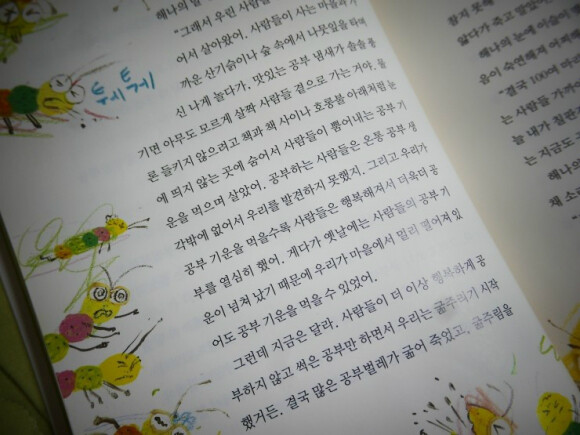 해나의 말
"그래서 우린 사람들
어서 살아왔어. 사람들이 사는 마을과 가
까운 산기슭이나 숲 속에서 나뭇잎을 하며
신 나게 놀다가, 맛있는 공부 냄새가 솔솔 풍
기면 아무도 모르게 살짝 사람들 곁으로 가는 거야. 물
론 들키지 않으려고 책과 책 사이나 호롱불 아래처럼 눈
에 띄지 않는 곳에 숨어서 사람들이 뿜어내는 공부 기
운을 먹으며 살았어. 공부하는 사람들은 온통 공부 생
각밖에 없어서 우리를 발견하지 못했지. 그리고 우리가
공부 기운을 먹을수록 사람들은 행복해져서 더욱더 공
부를 열심히 했어. 게다가 옛날에는 사람들의 공부 기
운이 넘쳐 났기 때문에 우리가 마을에서 멀리 떨어져 있
어도 공부 기운을 먹을 수 있었어.
그런데 지금은 달라. 사람들이 더 이상 행복하게 공
부하지 않고 썩은 공부만 하면서 우리는 굶주리기 시작
했거든. 결국 많은 공부벌레가 굶어 죽었고, 굶주림을
퉤퉤
참지 못해
앓다가 죽고 말았
해나의 눈에 이슬이
음이 숙연해져 어찌
"결국 100여 마리
는 사람을 가까이
늘 내가 칠판
는 지금도
해나의
채 소